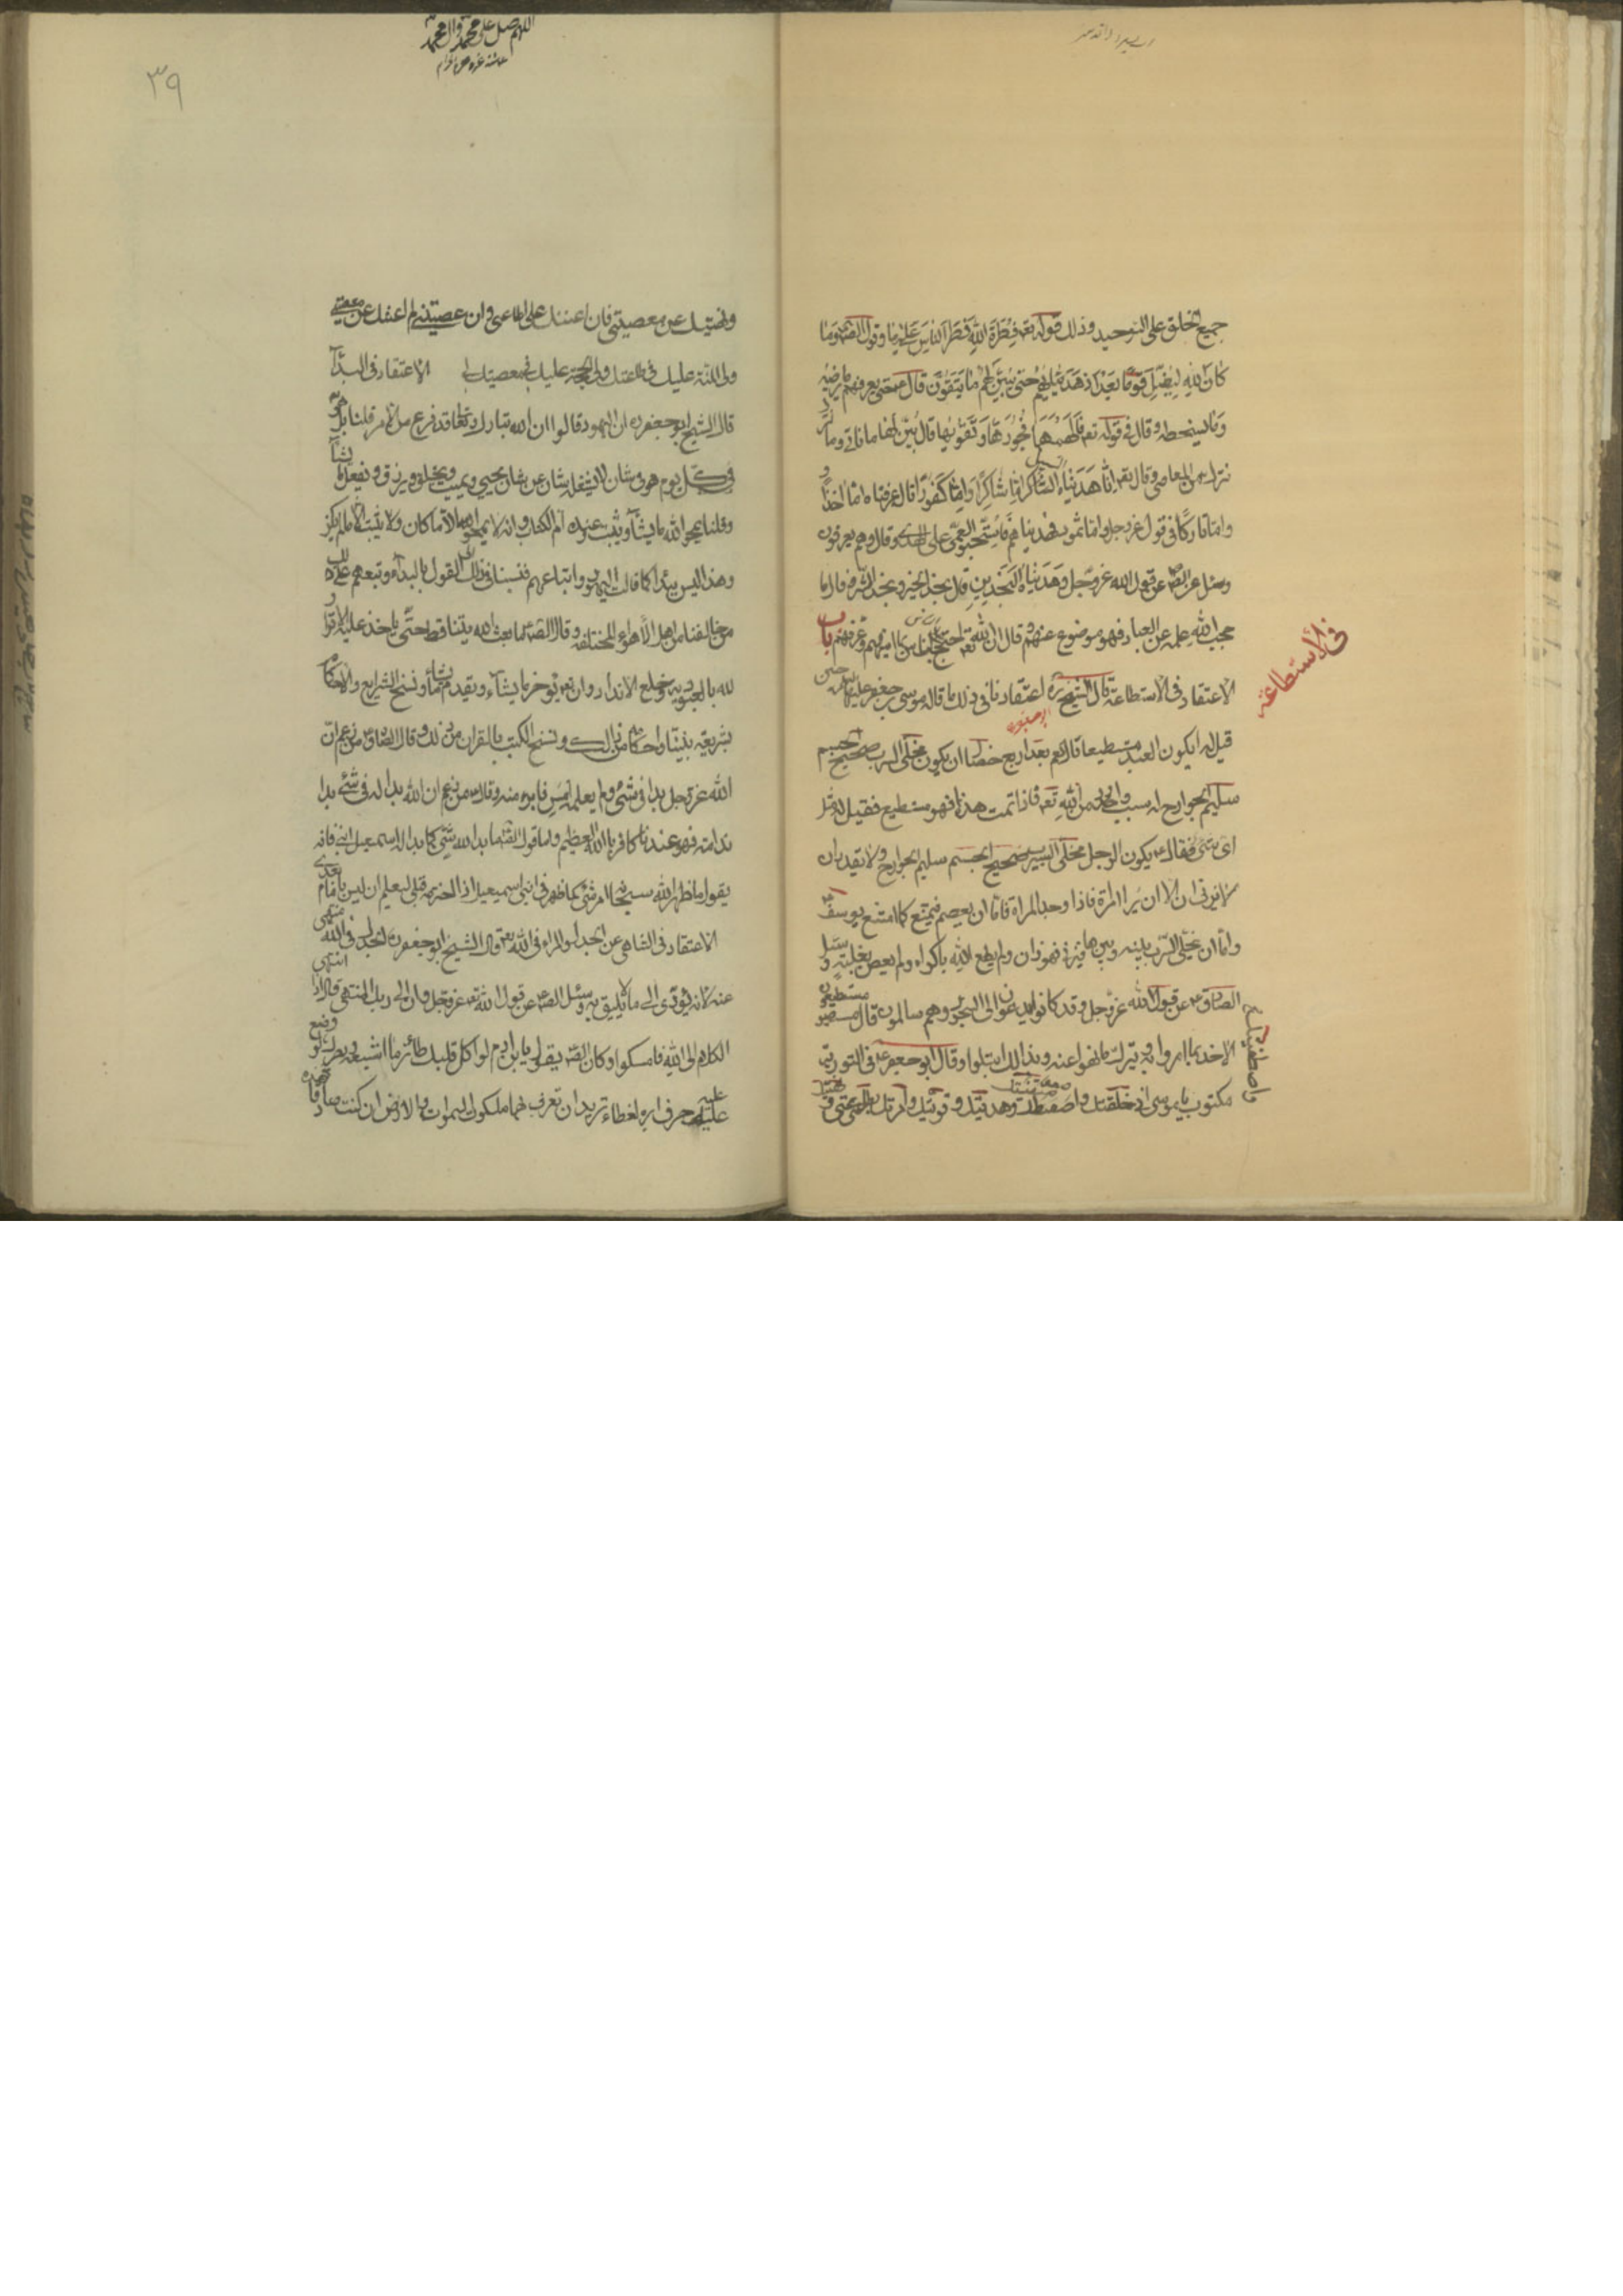 جميع الخلق على التوحيد وذلك قوله تعه فِطْرَةَ اللهِ فَطَرَ النَّاسَ عَلَيْها وقول الصه وَما
كانَ اللهِ لِيُضِلَّ قَومًا بَعْدَ اِذ هَدَيهُمْ حَتّى يُبَيِّنَ لَهُمْ ما يَتَّقُونَ قال حتى يعرفهم ما يرضيه
وما يسخطه وقال في قوله تعه فَاَلْهَمَها فُجُورَها وَ تَقْوٰيها قال بيّن لها ما تاتي وما
تترك من المعاصي وقال تعه اِنّا هَدَيْناهُ السَّبيل اِمّا شاكِرًا وَاِمّا كَفُورًا قال عرفناه امّا اخذًا و
وامّا تاركًا في قول عز وجل وامّا ثمود فهديناهم فَاسْتَحَبُّوا العَمى على الهُدى وقال وهم يعرفون
وسئل عن الصه عن قول الله عز وجل وَهَدَيْناهُ النَّجْدَينِ قال نجد الخير ونجد الشر وقال ما
حجب الله علمه عن العباد فهو موضوع عنهم وقال ان الله تعه احتج على الناس بما اتيهم وعرفهم باب
في الاستطاعة
الاعتقاد في الاستطاعة قال الشيخ ره اعتقادنا في ذلك ما قاله موسى بن جعفر عليه حين
قيل له ايكون العبد مستطيعا قال نعم بعد اربع خصال ان يكون مخلّى السرب صحيح الجسم
سليم الجوارح له سبب وارد من اللهِ تعه فاذا تمت هذا فهو مستطيع فقيل له مثل
اى شئ فقال ع يكون الرجل مخلّى السرب صحيح الجسم سليم الجوارح ولا يقدر ان
يزنى الا ان يرا امرأة فاذا وجد المراة فامّا ان يعصم فيمتنع كما امتنع يوسف
وامّا ان يخلّى السّرب بينه وبينها فيزنى فهو زان ولم يطع اللهِ باكراه ولم يعص بغلبته وسئل
الصّادق ع عن قول الله عز وجل وقد كانوا يدعون الى السجود وهم سالمون قال مستطيعون
الاخذ بما امروا به وبترك ما نهوا عنه وبذالك ابتلوا وقال ابو جعفر ع في التوراية
مكتوب يا موسى انى خلقتك واصطفيتك وهديتك وقوّيتك وامرتك بطاعتى و
اللهم صل على محمد وال محمد
٣٩
ونهيتك عن معصيتي فان اعنتك على طاعتى وان عصيتنى لم اعنك عن معصيتي
ولى المنّة عليك في طاعتك ولى الحجة عليك في معصيتك لى الاعتقاد في البدآ
قال الشيخ ابو جعفر ره ان اليهود قالوا ان الله تبارك وتعالى قد فرغ من الامر قلنا بل هو
في كل يوم هو في شان لا يشغله شان عن شان يحيى ويميت ويخلق ويرزق ويفعل ما يشآ
وقلنا يمحو الله ما يشآ ويثبت وعنده ام الكتاب وانه لا يمحو الا ما كان ولا يثبت الا ما لم يكن
وهذا ليس ببدا كما قالت اليهود واتباعهم فنسبنا في ذلك القول بالبدآ وتبعهم على ذلك
من خالفنا من اهل الأهواء المختلفه وقال الصه ما بعث الله نبيّنا قط حتّى ياخذ عليه الاقرار
لله بالعبوديه وخلع الانداد وان الله تعه يؤخر ما يشآء ويقدم ما يشآء ونسخ الشرايع والاحكام
بشريعة نبيّنا واحكامه من ذلك ونسخ الكتب بالقران من ذلك وقال الصّادق ع من زعم انّ
الله عز وجل بدا في شئ ولم يعلمه امسِ فابره منه وقال ع من زعم ان الله بدا له في شئ بدا
ندامة فهو عندنا كافر بالله العظيم ولما قول الصه ما بدا لله شئ كما بدا له اسمعيل ابنى فانه
يقول ما ظهر الله سبحانه امر في شئ كما ظهر في ابنى اسمعيل اذا اخترمه قبلى ليعلم ان ليس بامام بعدى
الاعتقاد في التناهى عن الجدل والمراء في الله تعه قال الشيخ ابو جعفر ره الجدل في الله منهى
عنه لانه يؤدى الى ما لا يليق به وسئل الصه ع عن قول الله تعه عز وجل وان الى ربك المنتهى قال اذا انتهى
الكلام الى الله فامسكوا وكان الصه يقول يابن ادم لو اكل قلبك طائر ما اشبعه وبصرك لو وضع
عليه حرف ابره لغطاه تريد ان تعرف بهما ملكوت السموات والارض ان كنت صادقا